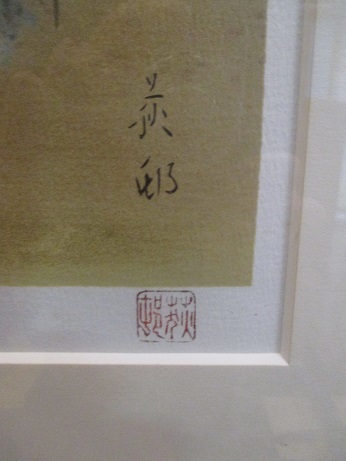 荻
邨
荻邨